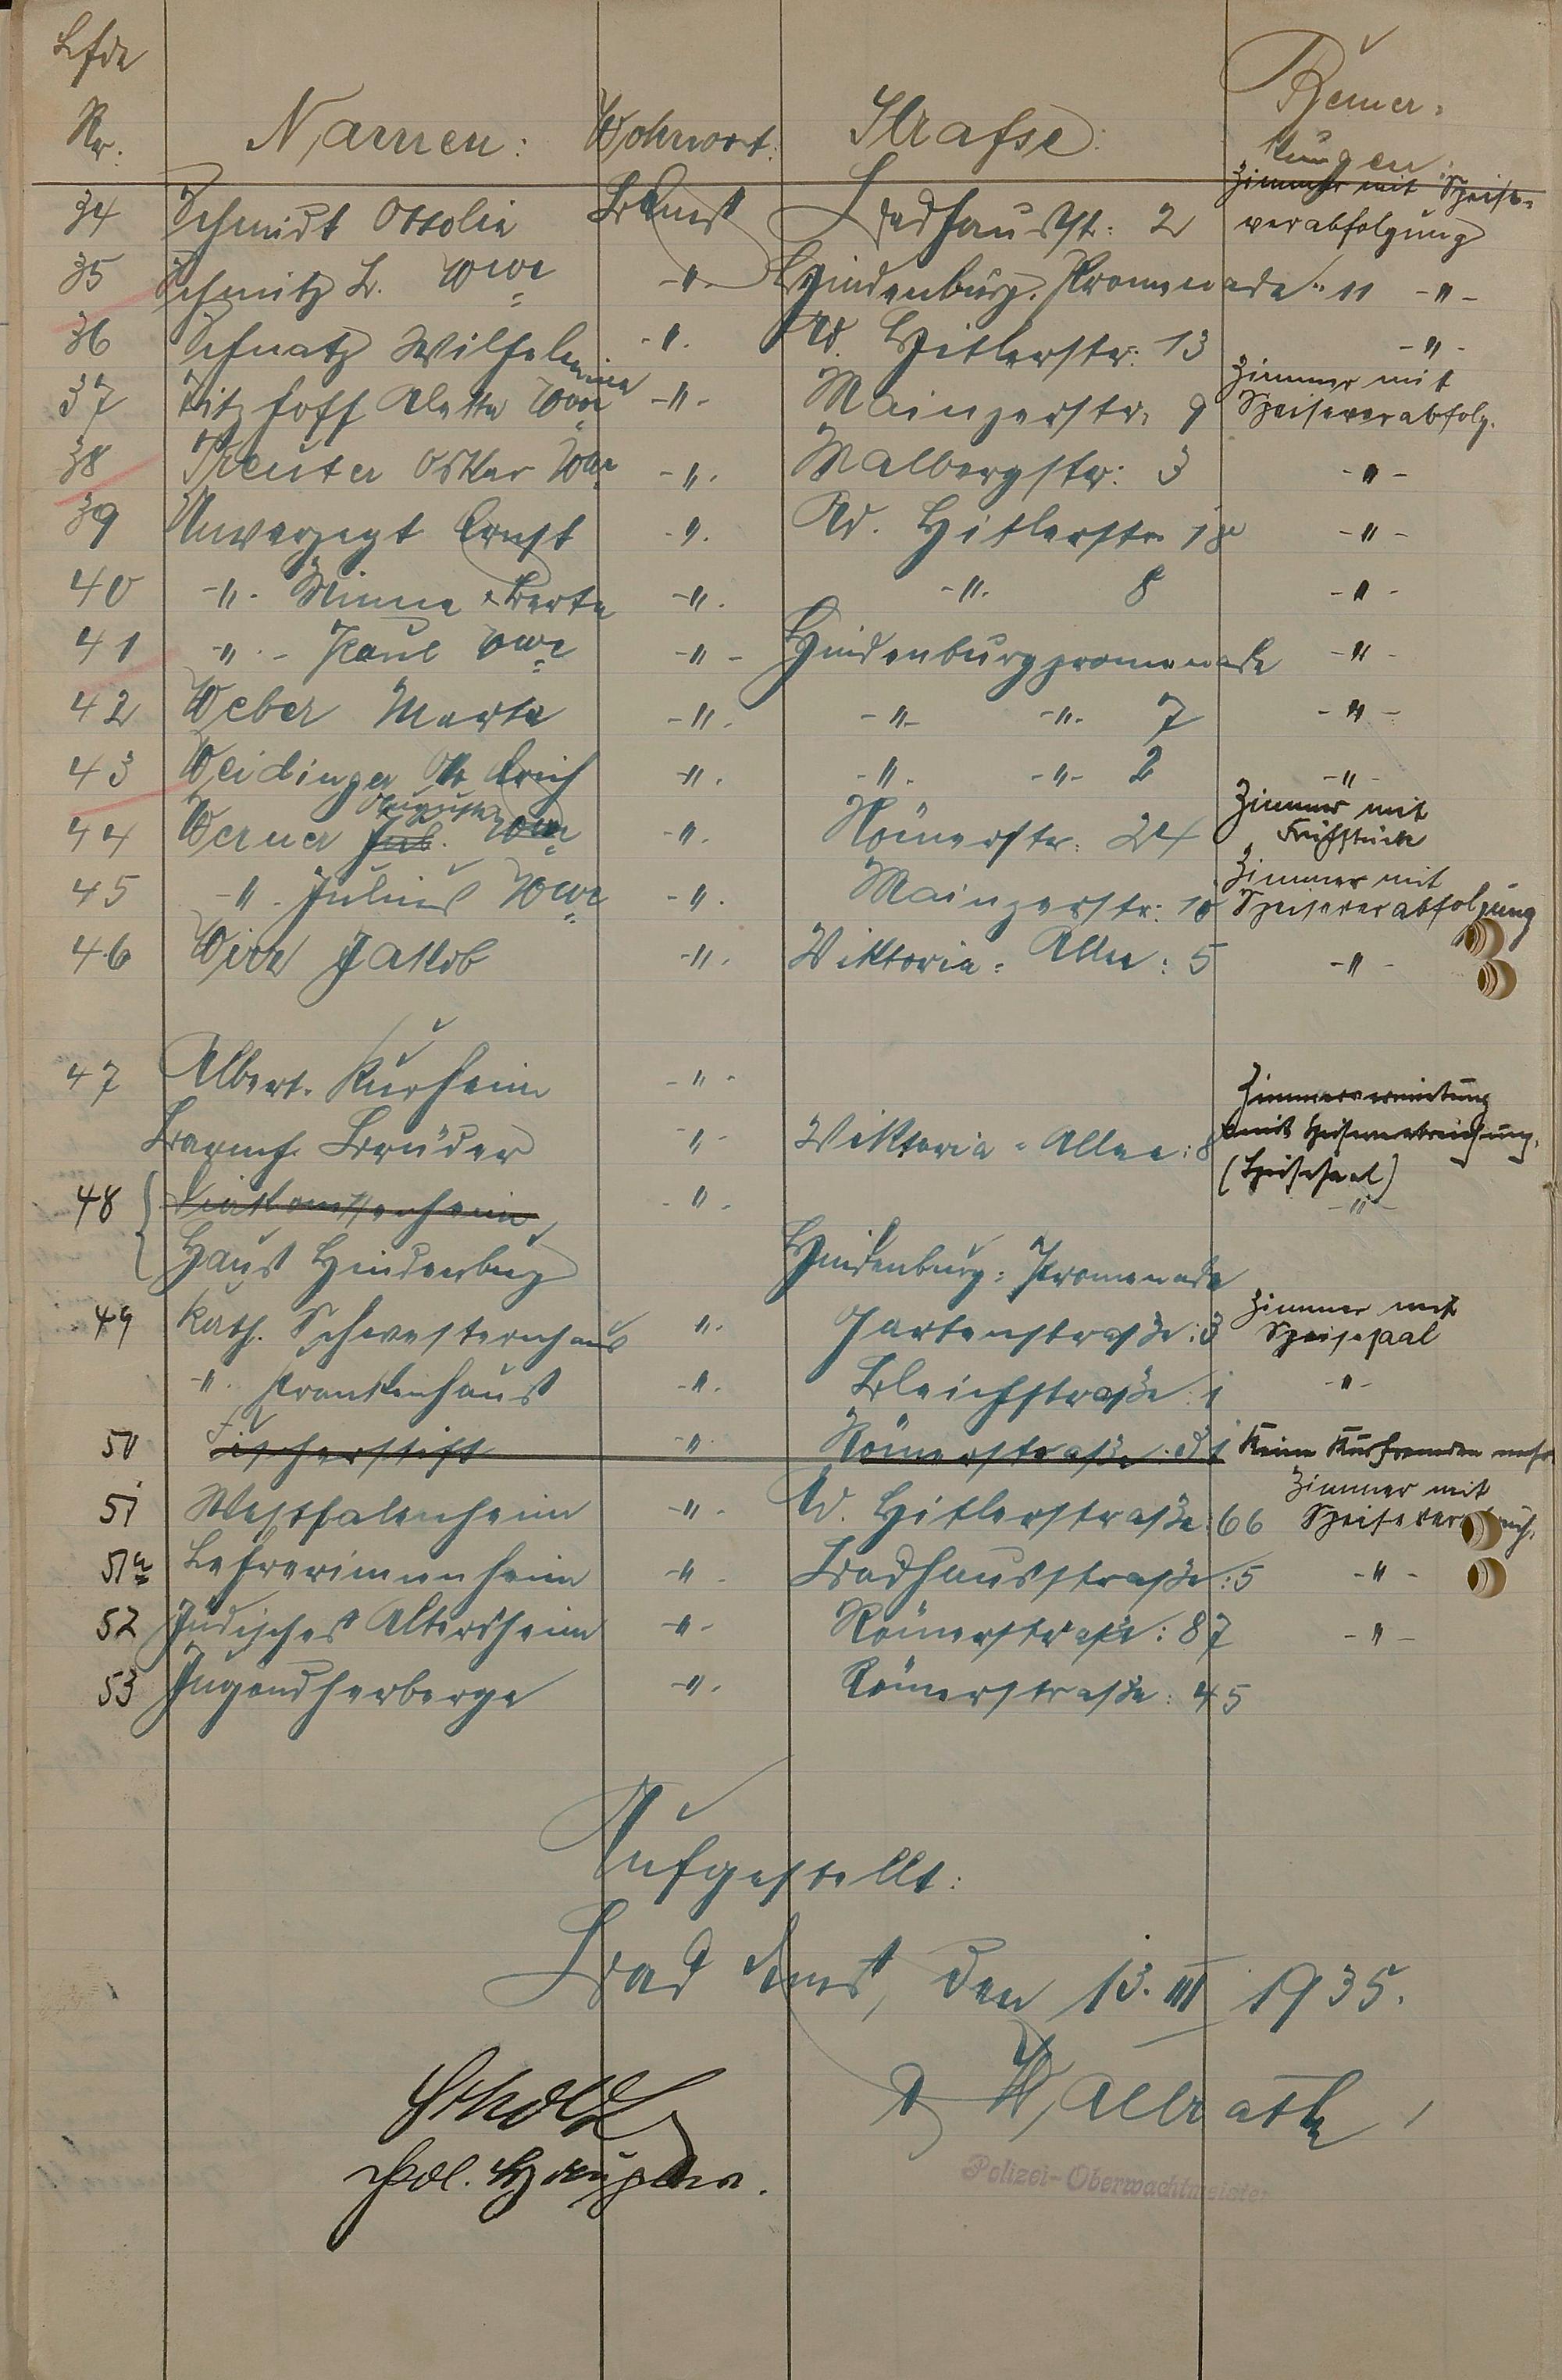 Lfde Nr. Namen: Wohnort: Strasse: Bemer-
kungen
Zimmer mit Speise-
34 Schmidt Ottolie B. Ems Badhausstr: 2 verabfolgung
35 Schmitz L. Wwe -"- Hindenburg. Promenade 11 -"-
36 Schnatz Wilhelmine -"- Ad. Hitlerstr: 13 -"-
Zimmer mit
37 Aletta Wwe -"- Mainzerstr. 9 Speiseverabfolg.
38 Treuter Oskar Wwe -"- Malbergstr: 3 -"-
39 Unverzagt Ernst -"- Ad. Hitlerstr. -"-
40 -"- Minna & Berta -"- -"- 8 -"-
41 -"- Paul Wwe -"- Hindenburgpromenade -"-
42 Weber Marta -"- -"- -"- 7 -"-
43 Weidinger Erich -"- -"- -"- 2 -"-
Auguste Zimmer mit
44 Werner Jul. Wwe -"- Römerstr: 24 Frühstück
Zimmer mit
45 -"- Julius Wwe -"- Mainzerstr: 10 Speiseverabfolgung
46 Wirz Jakob -"- Viktoria-Allee: 5 -"-
47 Albert. Kurheim -"- Zimmervermietung
Barmh. Brüder -"- Viktoria-Allee: 8 mit Speiseverabreichung.
(Speisesaal)
48 Diakonissenheim -"- -"-
Haus Hindenburg Hindenburg-Promenade
Zimmer mit
49 Kath. Schwesternhaus -"- Gartenstraße: 3 Speisesaal
-"- Krankenhaus -"- Bleichstraße: 1 -"-
50 Fischerstift -"- Römerstraße: 81 Keine Kurfremden mehr
Zimmer mit
51 Westfalenheim -"- Ad. Hitlerstraße: 66
51a Lehrerinnenheim -"- Badhausstraße: 5 -"-
52 Jüdisches Altersheim -"- Römerstraße: 87 -"-
53 Jugendherberge -"- Römerstraße: 45
Aufgestellt:
Bad Ems, den 13. III 1935.
Wallrath
Pol. Hauptw.
Polizei-Oberwachtmeister